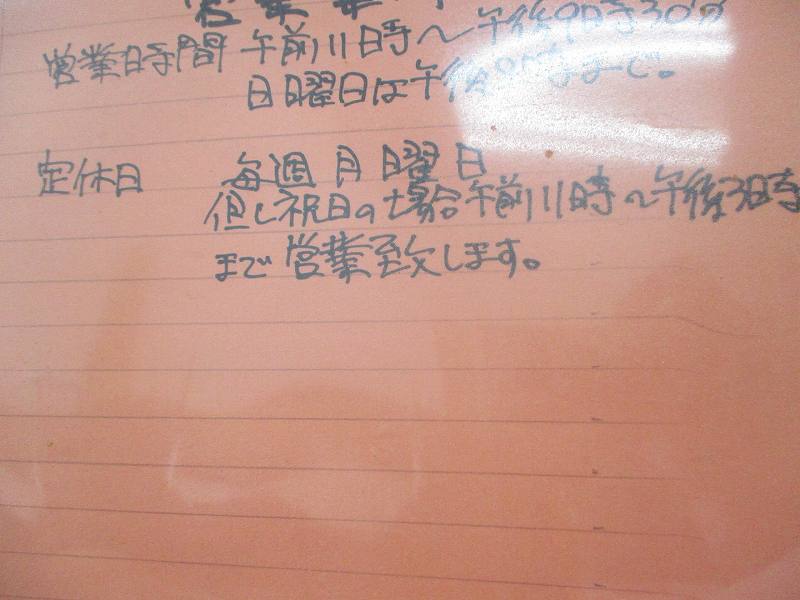 営業
営業時間 午前11時〜午後9時30分
日曜日は午後 時まで。
定休日 毎週月曜日
但し祝日の場合午前11時〜午後3時
まで営業致します。